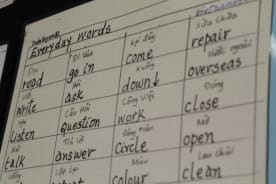 Vietnamese
Everyday words
Đọc Đi Vào Lại đây Sửa Chữa
read go in come repair
Hỏi Xuống Nước ngoài
write ask down↓ overseas
Câu Hỏi Công Việc Đóng
listen question work close
Nói Trả lời Vòng tròn Mở
talk answer circle open
Uống Lặp Lại Màu Lau chùi
colour clean